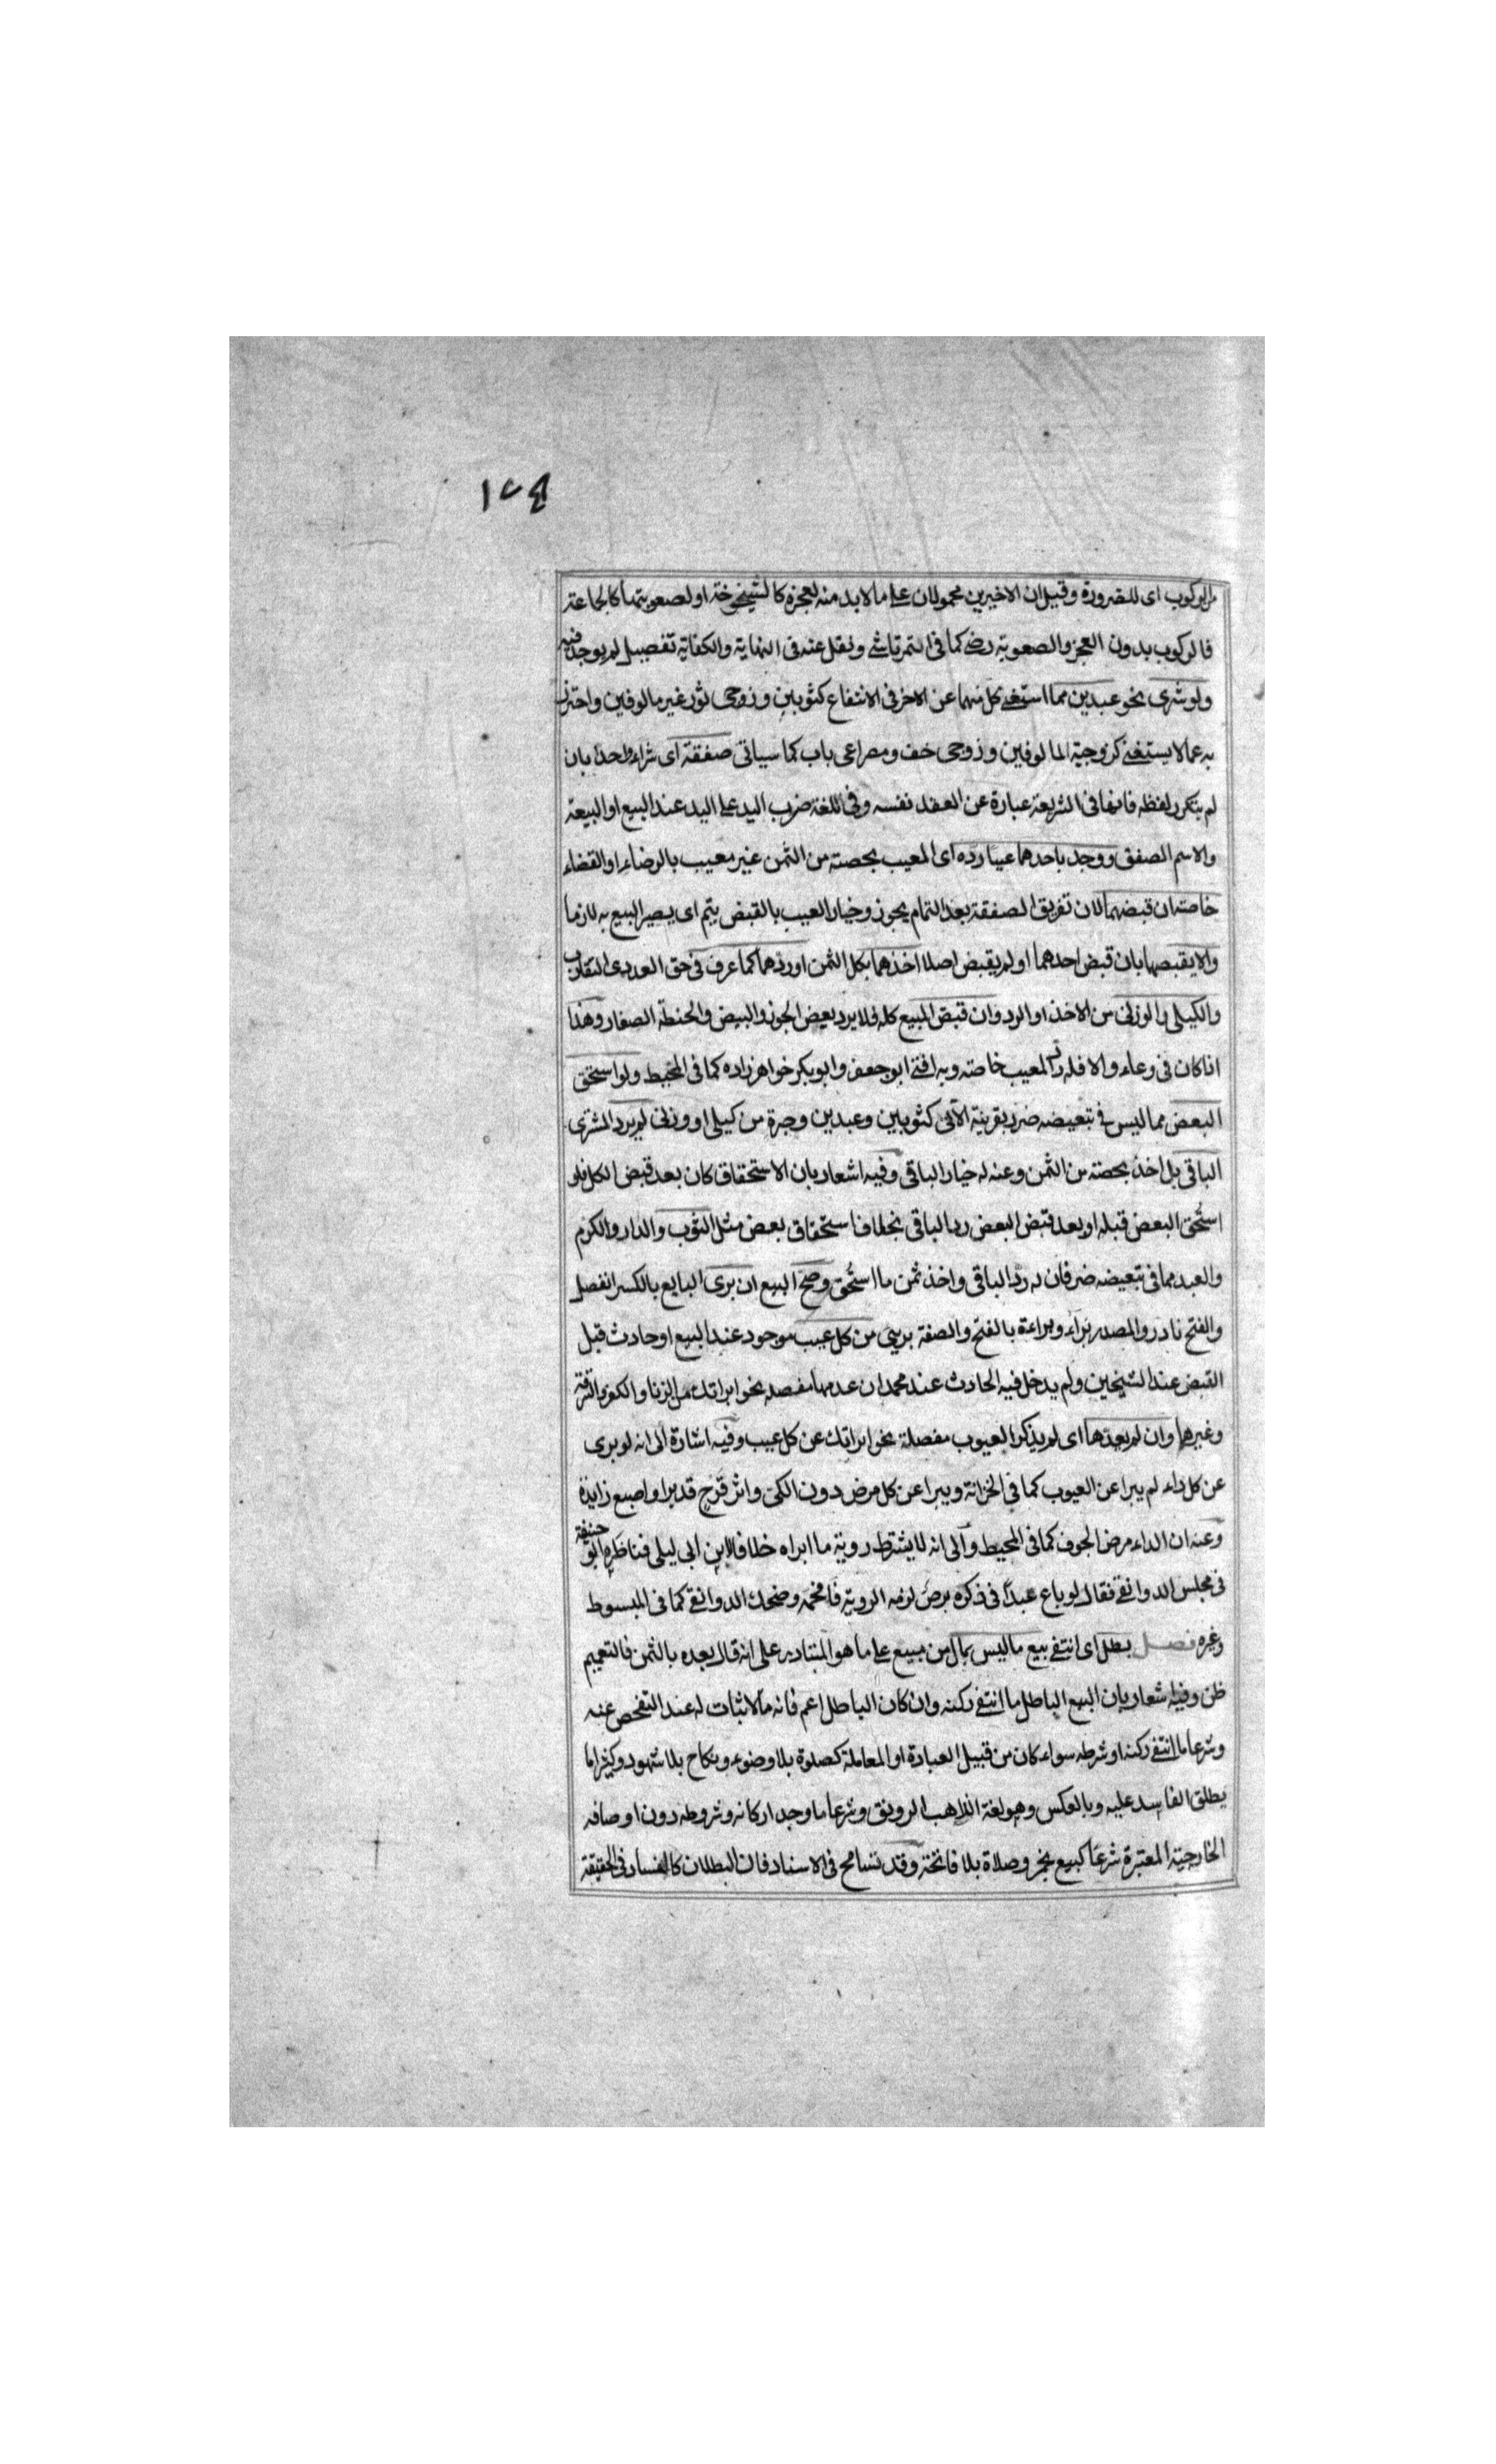 ١٧٤
من الركوب اى للضرورة وقيل ان الاخيرين محمولان على ما لا بد منه لعجزه كالشيخوخة او لصعوبتها كالجماعة
فالركوب بدون العجز والصعوبة رضى كما فى التمرتاشى ونقل عنه فى النهاية والكفاية تفصيل لم يوجد فيه
ولو شرى نحو عبدين مما استغنى كل منهما عن الاخر فى الانتفاع كثوبين وزوجى ثور غير مالوفين واحترز
به عما لا يستغنى كزوجية المالوفين وزوجى خف ومصراعى باب كما سياتى صفقة اى شراء واحدا بان
لم يتكرر لفظه فانها فى الشريعة عبارة عن العقد نفسه وفى اللغة ضرب اليد على اليد عند البيع او البيعة
والاسم الصفق ووجد باحدهما عيبا رده اى المعيب بحصته من الثمن غير معيب بالرضاء او القضاء
خاصة ان قبضهما لان تفريق الصفقة بعد التمام يجوز وخيار العيب بالقبض يتم اى يصير البيع به لازما
والا يقبضها بان قبض احدهما او لم يقبض اصلا اخذهما بكل الثمن او ردهما كما عرف فى حق العددى المتقارب
والكيلى والوزنى من الاخذ او الرد وان قبض المبيع كله فلا يرد بعض الجوز والبيض والحنطة الصغار وهذا
اذا كان فى وعاء والا فله رد المعيب خاصة وبه افتى ابو جعفر وابو بكر خواهر زاده كما فى المحيط ولو استحق
البعض مما ليس فى تبعيضه ضرر بقرينة الآتى كثوبين وعبدين وجرة من كيلى او وزنى لم يرد المشترى
الباقى بل اخذ بحصته من الثمن وعنه له خيار الباقى وفيه اشعار بان الاستحقاق كان بعد قبض الكل فلو
استُحق البعض قبله او بعد قبض البعض رد الباقى بخلاف استحقاق بعض مثل الثوب والدار والكرم
والعبد مما فى تبعيضه ضر فان له رد الباقى واخذ ثمن ما استُحق وصح البيع ان برى البايع بالكسر انفصل
والفتح نادر والمصدر براء وبراءة بالفتح والصفة بريى من كل عيب موجود عند البيع او حادث قبل
القبض عند الشيخين ولم يدخل فيه الحادث عند محمد ان عدها مفصله نحو ابراتك من الزنا والكفر والسرقة
وغيرها وان لم يعدها اى لم يذكر العيوب مفصلة نحو ابراتك عن كل عيب وفيه اشارة الى انه لو برى
عن كل داء لم يبرا عن العيوب كما فى الخزانة ويبرا عن كل مرض دون الكى واثر قرح قد برا واصبع زايدة
وعنه ان الداء مرض الجوف كما فى المحيط والى انه لا يشترط روية ما ابراه خلافا لابن ابى ليلى فناظره ابو حنيفة
فى مجلس الدوانقى فقال لو باع عبداً فى ذكره برص لزمه الروية فافحمه وضحك الدوانقى كما فى المبسوط
وغيره فصل بطل اى انتفى بيع ما ليس بمال من مبيع على ما هو المتبادر على انه قال بعده بالثمن فالتعميم
ظن وفيه اشعار بان البيع الباطل ما انتفى ركنه وان كان الباطل اعم فانه ما لا ثبات له عند التفحص عنه
وشرعا ما انتفى ركنه او شرطه سواء كان من قبيل العبادة او المعاملة كصلوة بلا وضوء ونكاح بلا شهود وكثيرا ما
يطلق الفاسد عليه وبالعكس وهو لغة الذاهب الرونق وشرعا ما وجد اركانه وشروطه دون اوصافه
الخارجية المعتبرة شرعا كبيع بخمر وصلاة بلا فاتحة وقد تسامح فى الاسناد فان البطلان كالفساد فى الحقيقة